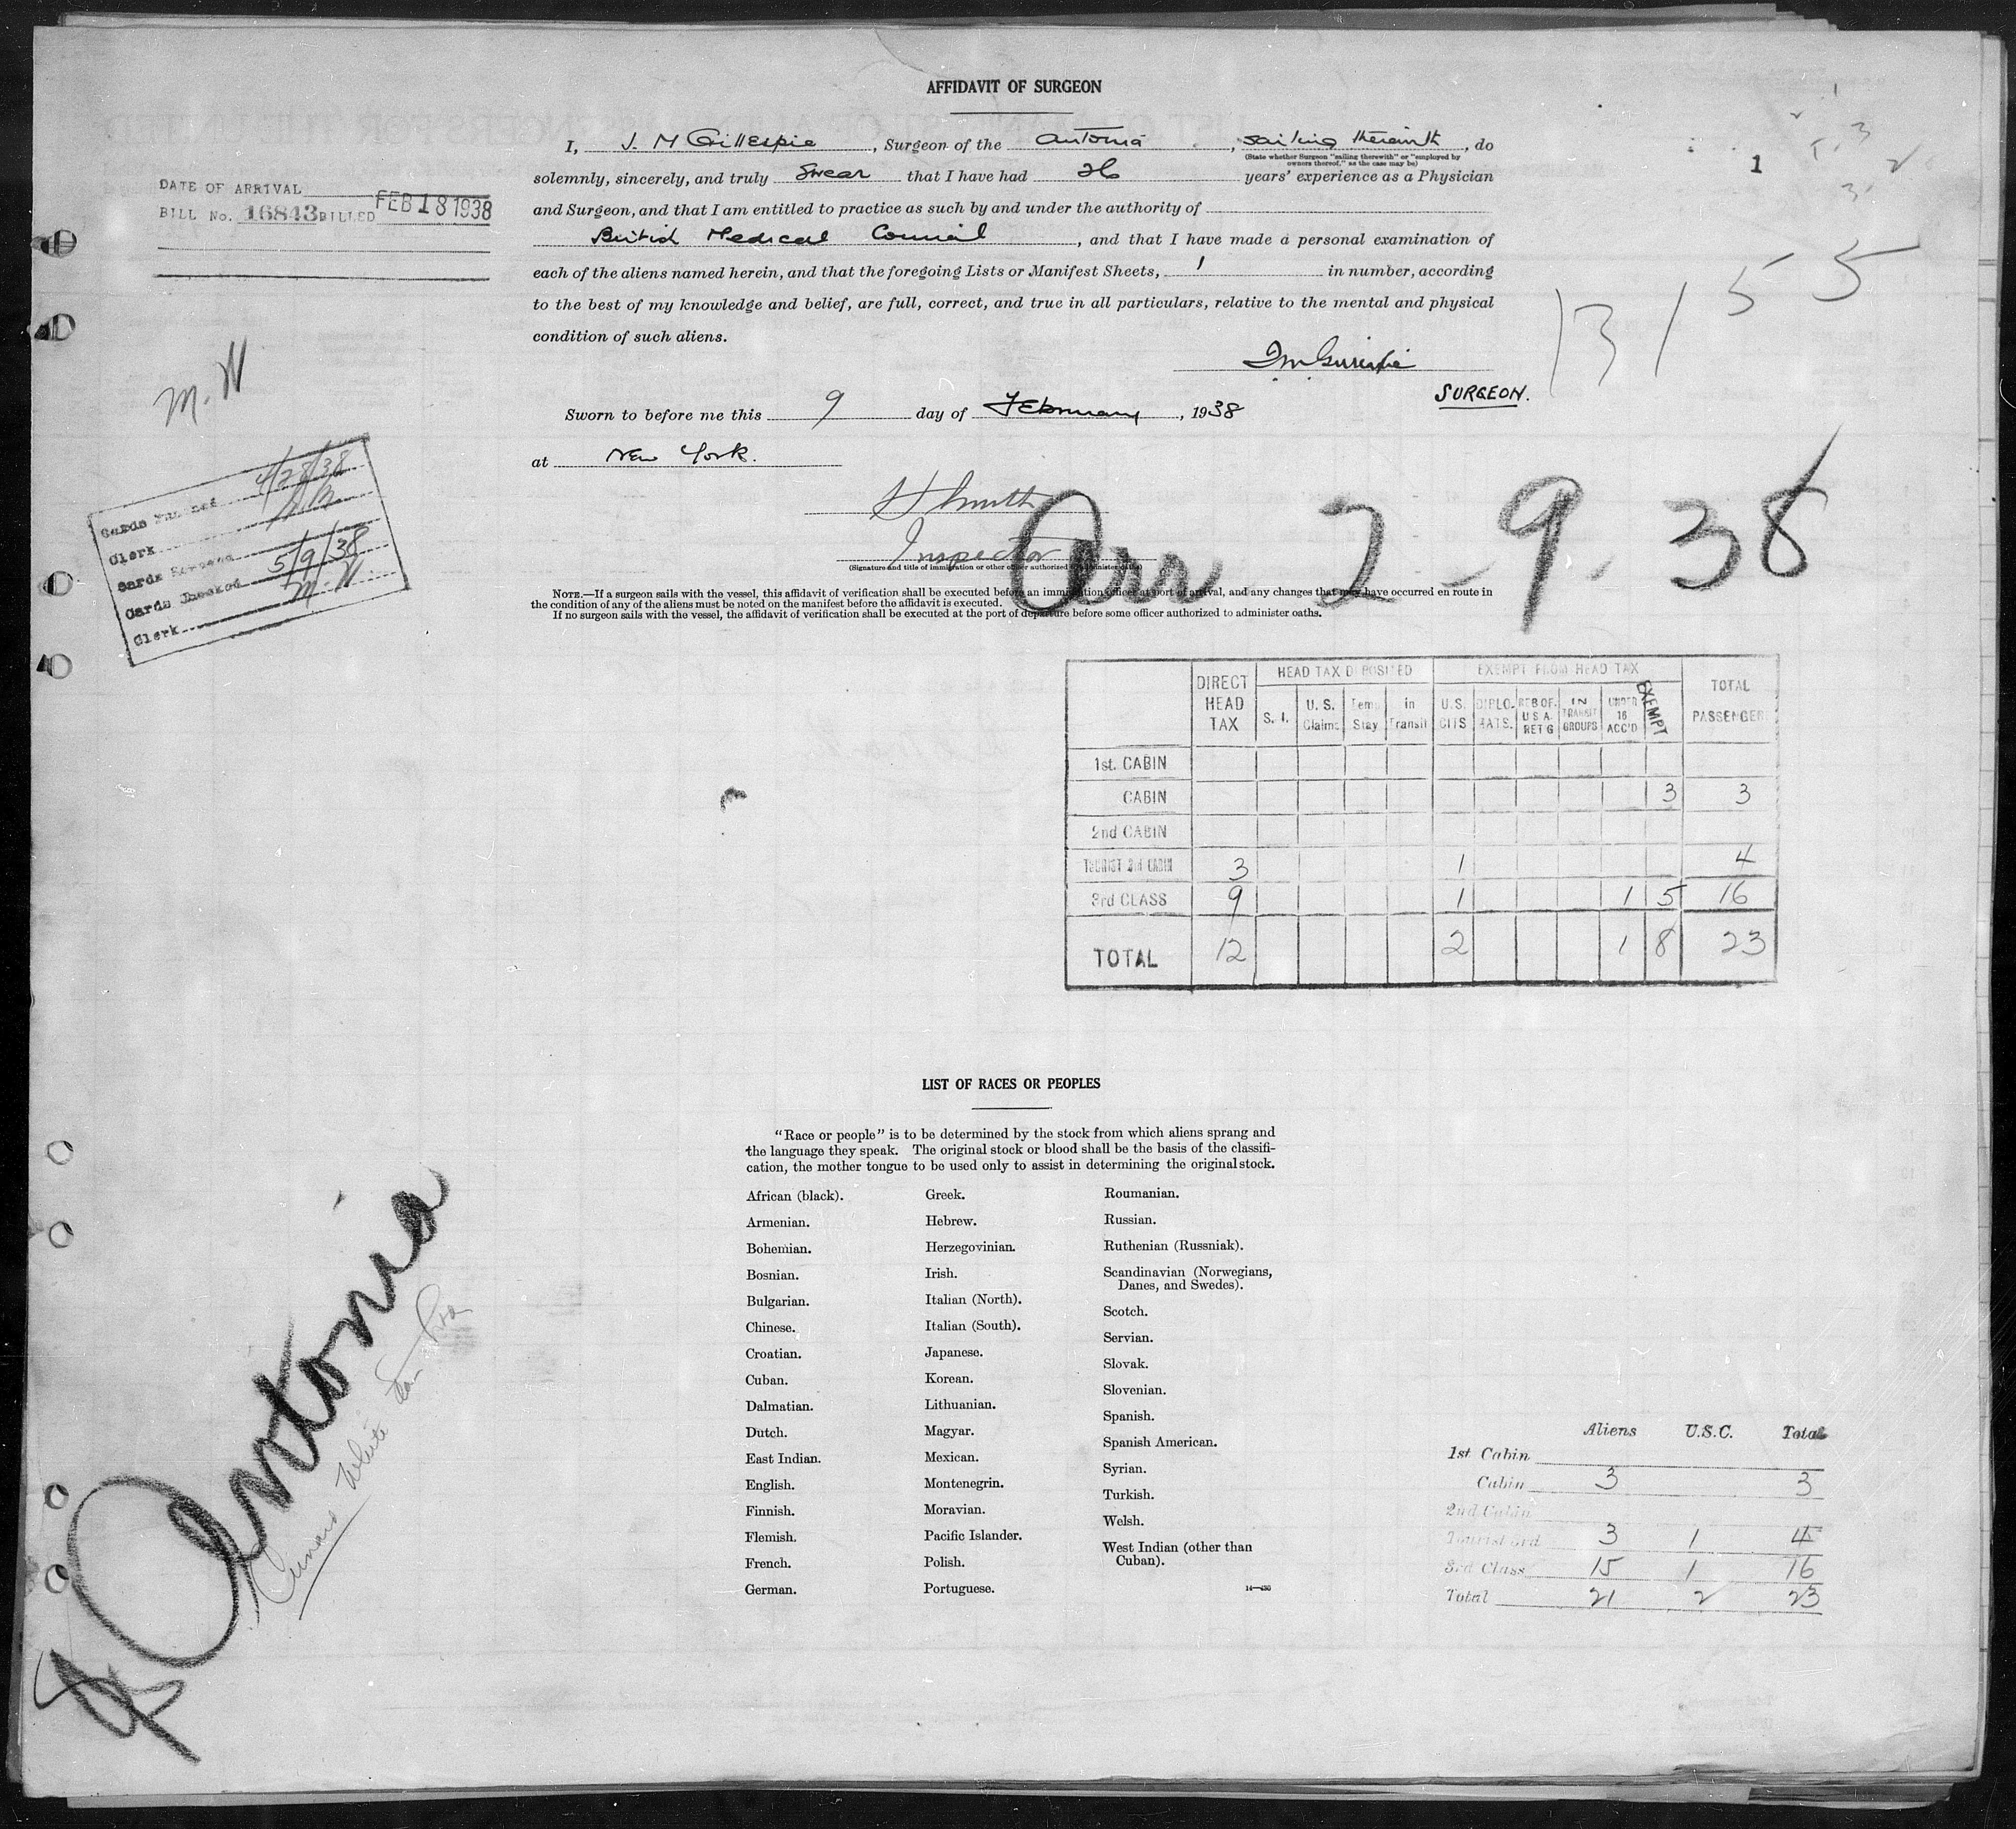 AFFIDAVIT OF SURGEON
I, J. M Gillespie, Surgeon of the Antonia, sailing therewith, do
(State whether Surgeon "sailing therewith" or "employed by
owners thereof," as the case may be)
solemnly, sincerely, and truly Swear that I have had 26 years' experience as a Physician
and Surgeon, and that I am entitled to practice as such by and under the authority of
British Medical Council, and that I have made a personal examination of
each of the aliens named herein, and that the foregoing Lists or Manifest Sheets, 1 in number, according
to the best of my knowledge and belief, are full, correct, and true in all particulars, relative to the mental and physical
condition of such aliens.
JM Gillespie
SURGEON.
Sworn to before me this 9 day of February, 1938
at New York.
Smith
Inspector
(Signature and title of immigration or other officer authorized to administer oaths)
NOTE.—If a surgeon sails with the vessel, this affidavit of verification shall be executed before an immigration officer at port of arrival, and any changes that may have occurred en route in
the condition of any of the aliens must be noted on the manifest before the affidavit is executed.
If no surgeon sails with the vessel, the affidavit of verification shall be executed at the port of departure before some officer authorized to administer oaths.
DATE OF ARRIVAL
BILL No. 16843 BILLED FEB 18 1938
M. W
Cards 4/28/38
Clerk
Cards
Cards Checked 5/9/38
Clerk M. W.
1
13155
Arr 2-9-38
DIRECT HEAD TAX
HEAD TAX DEPOSITED
EXEMPT FROM HEAD TAX
TOTAL PASSENGER
S. I. U. S. Claims Temp Stay in Transit U.S. CITS DIPLO-MATS. REB OF. U S A. RET G IN TRANSIT GROUPS UNDER 16 ACC'D EXEMPT
1st. CABIN
CABIN 3 3
2nd CABIN
TOURIST 3rd CABIN 3 1 4
3rd CLASS 9 1 1 5 16
TOTAL 12 2 1 8 23
LIST OF RACES OR PEOPLES
"Race or people" is to be determined by the stock from which aliens sprang and
the language they speak. The original stock or blood shall be the basis of the classifi-
cation, the mother tongue to be used only to assist in determining the original stock.
African (black).
Armenian.
Bohemian.
Bosnian.
Bulgarian.
Chinese.
Croatian.
Cuban.
Dalmatian.
Dutch.
East Indian.
English.
Finnish.
Flemish.
French.
German.
Greek.
Hebrew.
Herzegovinian.
Irish.
Italian (North).
Italian (South).
Japanese.
Korean.
Lithuanian.
Magyar.
Mexican.
Montenegrin.
Moravian.
Pacific Islander.
Polish.
Portuguese.
Roumanian.
Russian.
Ruthenian (Russniak).
Scandinavian (Norwegians,
Danes, and Swedes).
Scotch.
Servian.
Slovak.
Slovenian.
Spanish.
Spanish American.
Syrian.
Turkish.
Welsh.
West Indian (other than
Cuban).
Antonia
Cunard White Star
Aliens U.S.C. Total
1st Cabin
Cabin 3 3
2nd Cabin
Tourist 3rd 3 1 4
3rd Class 15 1 16
Total 21 2 23